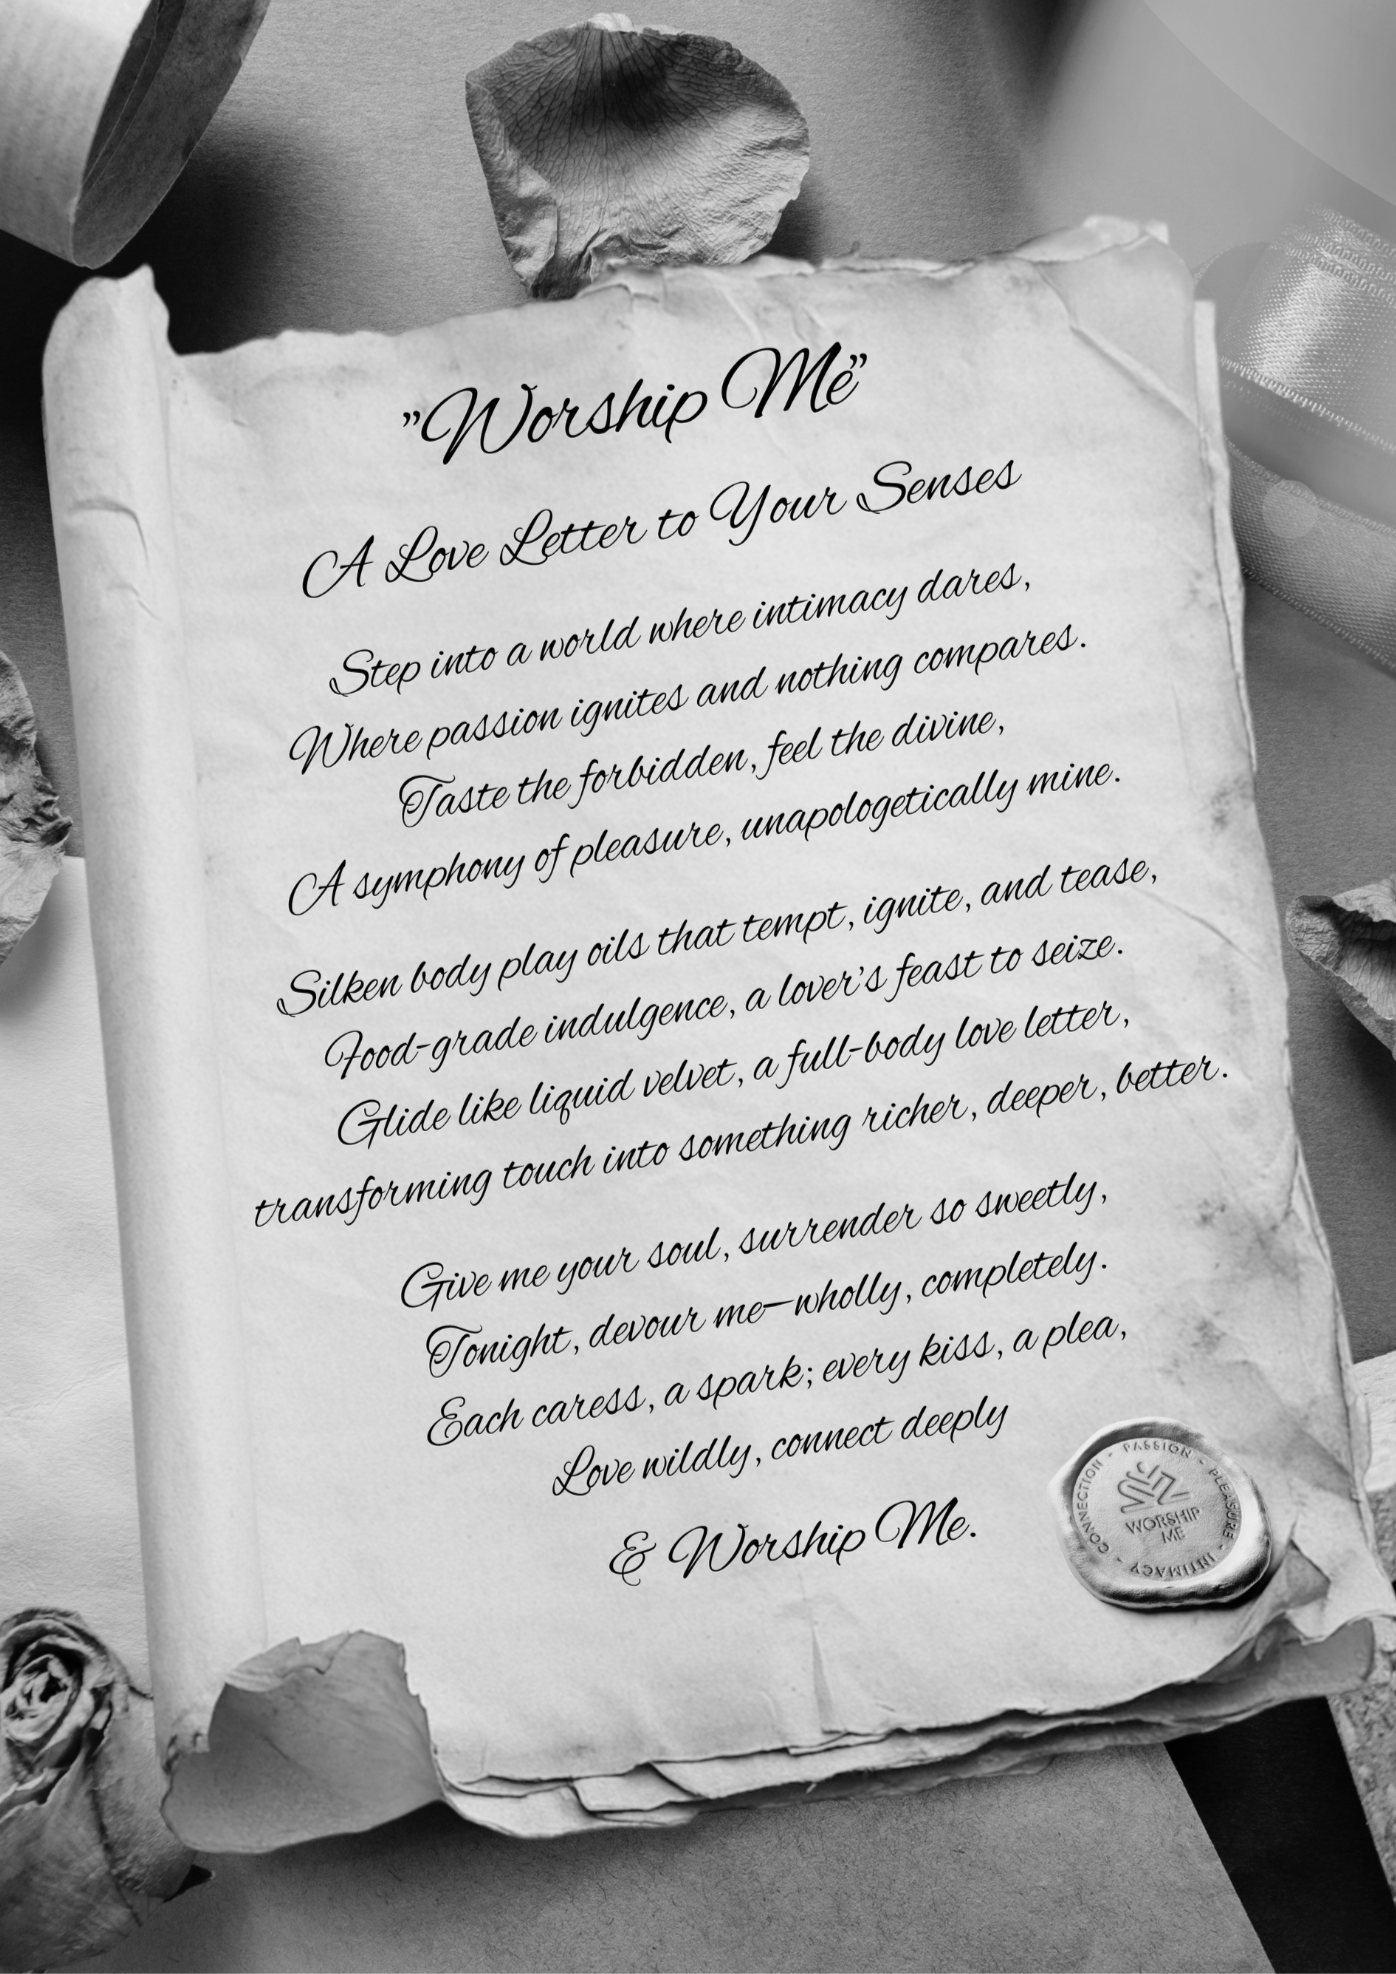 "Worship Me"
A Love Letter to Your Senses
Step into a world where intimacy dares,
Where passion ignites and nothing compares.
Taste the forbidden, feel the divine,
A symphony of pleasure, unapologetically mine.
Silken body play oils that tempt, ignite, and tease,
Food-grade indulgence, a lover's feast to seize.
Glide like liquid velvet, a full-body love letter,
transforming touch into something richer, deeper, better.
Give me your soul, surrender so sweetly,
Tonight, devour me—wholly, completely.
Each caress, a spark; every kiss, a plea,
Love wildly, connect deeply
& Worship Me.
CONNECTION - PASSION - PLEASURE - INTIMACY -
WORSHIP
ME